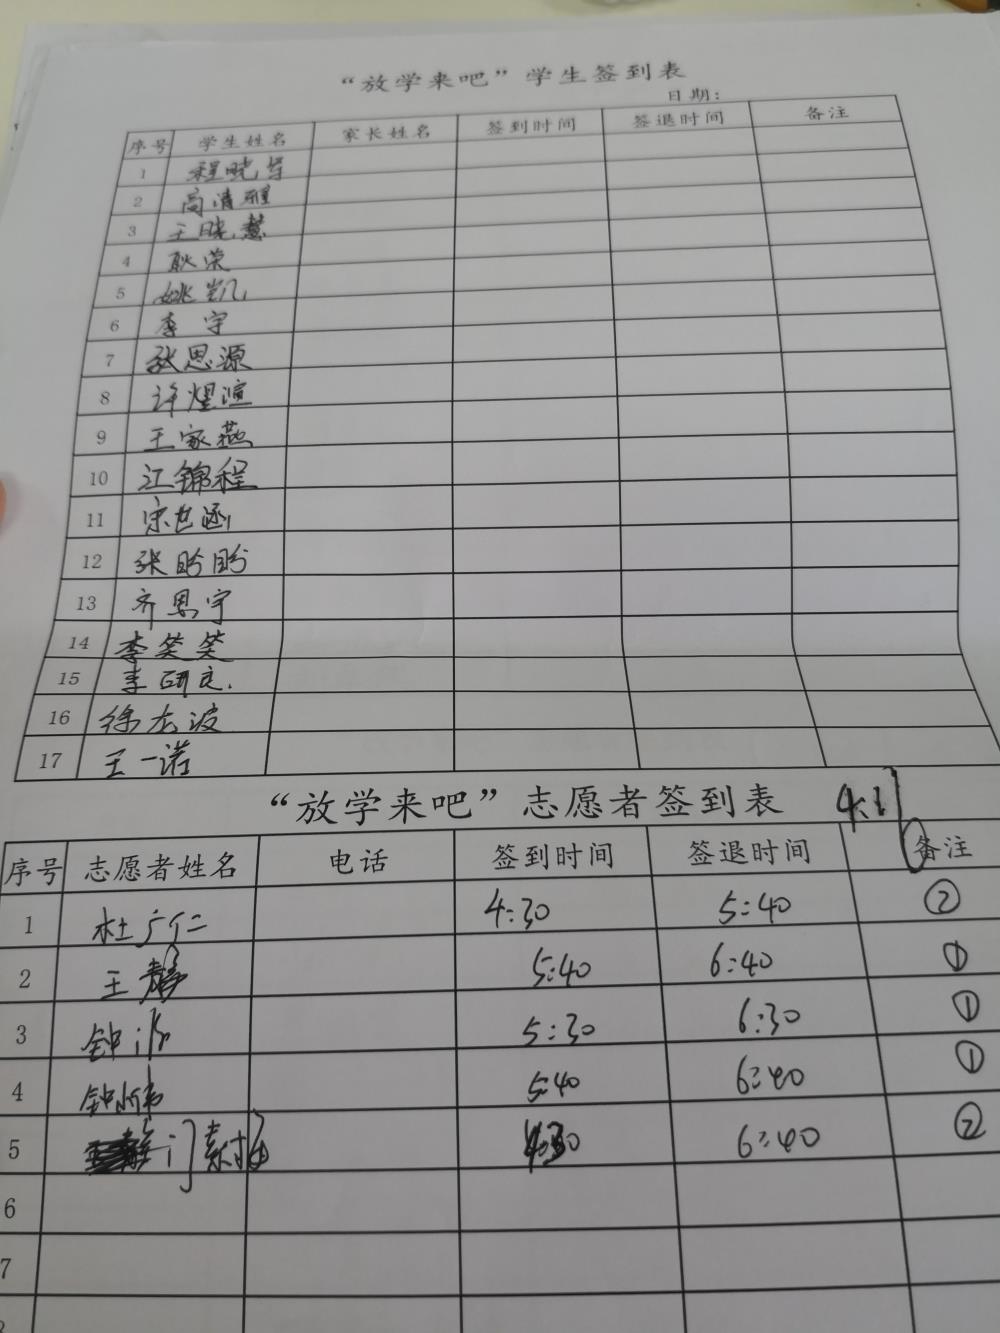 “放学来吧”学生签到表
日期：
序号 学生姓名 家长姓名 签到时间 签退时间 备注
1 程晓
2 高清雅
3 王晓慧
4 耿荣
5 姚凯
6 李宇
7 张思源
8 许煜渲
9 王家燕
10 江锦程
11 宋世涵
12 张盼盼
13 齐思宇
14 李笑笑
15 李研
16 徐左波
17 王一诺
“放学来吧”志愿者签到表 4.1
序号 志愿者姓名 电话 签到时间 签退时间 备注
1 杜广仁 4:30 5:40 ②
2 王 5:40 6:40 ①
3 钟 5:30 6:30 ①
4 钟 5:40 6:40 ①
5 6:40 ②
6
7